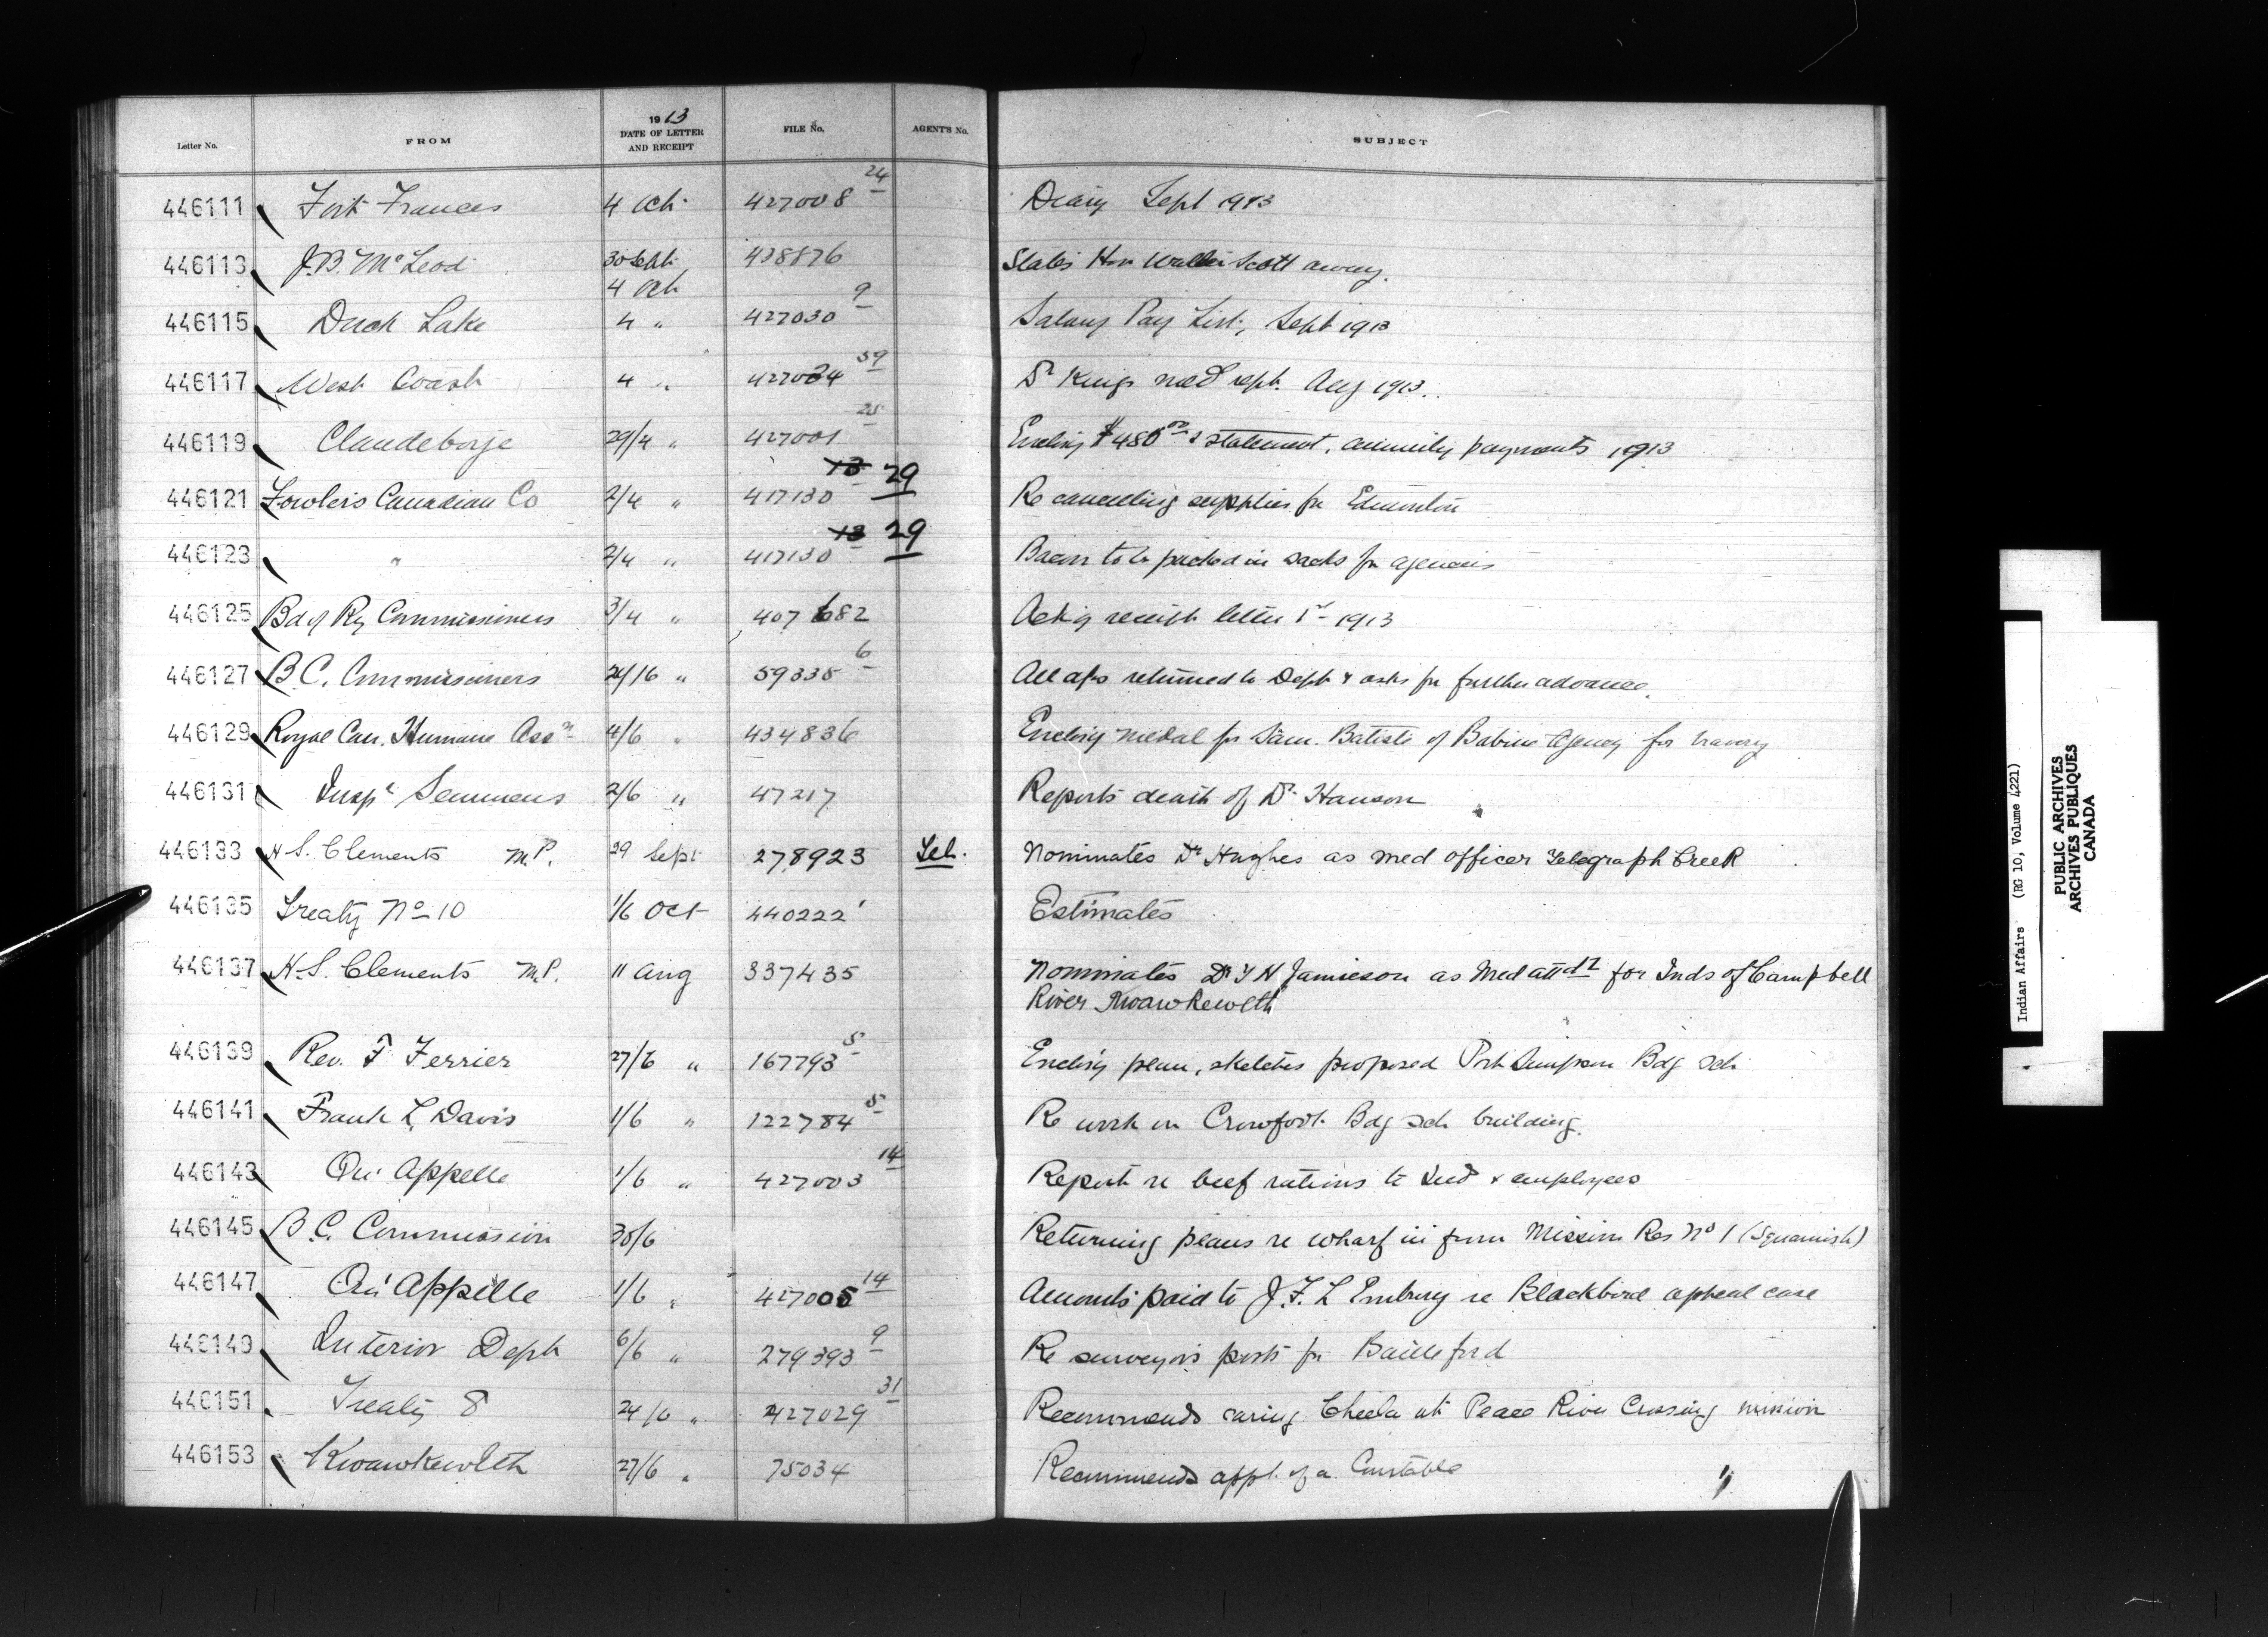 Letter No. FROM 1913 DATE OF LETTER AND RECEIPT FILE No. AGENT'S No. SUBJECT
446111 Fort Frances 4 Oct. 427008 24 Diary Sept 1913
446113 J.B. McLeod 30 Sept 4 Oct 438876 States Hon Walter Scott away.
446115 Duck Lake 4 " 427030 9 Salary Pay List, Sept 1913
446117 West Coast 4 " 427034 59 Dr Kings med rept. Aug 1913.
446119 Claudeboye 29/4 " 427001 25 Enclosing $480.00 & statement, annuity payments 1913
446121 Fowlers Canadian Co 2/4 " 417130 13 29 Re cancelling supplies for Edmonton
446123 " 2/4 " 417130 13 29 Bacon to be packed in sacks for agencies
446125 Bd of Ry Commissioners 3/4 " 407682 Ackg receipt letter 1st 1913
446127 B.C. Commissioners 24/16 " 59335 6 All a/cs returned to Dept & asks for further advance.
446129 Royal Can. Humane Assn 4/6 " 434836 Enclosing medal for Sam. Batiste of Babine Agency for bravery
446131 Inspr Semmens 2/6 " 47217 Reports death of Dr Hanson
446133 N.S. Clements M.P. 29 Sept 278923 Nominates Dr Hughes as med officer Telegraph Creek
446135 Treaty No 10 1/6 Oct 440222 1 Estimates
446137 H.S. Clements M.P. 11 Aug 337435 Nominates Dr Jamieson as Med attdt for Inds of Campbell
River Kwawkewlth
446139 Rev. F. Ferrier 27/6 " 167793 5 Enclosing plan, sketches proposed Port Simpson Bdg Sch
446141 Frank L. Davis 1/6 " 122784 5 Re work on Crowfoot Bdg Sch building.
446143 Qu'Appelle 1/6 " 427003 14 Report re beef rations to Ind & employees
446145 B.C. Commission 30/6 Returning plans re wharf in front Mission Res No 1 (Squamish)
446147 Qu'Appelle 1/6 " 427005 14 Amounts paid to J.F.L. Embury re Blackbird appeal case
446149 Interior Dept 6/6 " 279393 9 Re surveyors posts for Battleford
446151 Treaty 8 24/6 " 427029 31 Recommends at Peace River Crossing mission
446153 Kwawkewlth 27/6 " 75034 Recommends appt. of a Constable
Indian Affairs (RG 10, Volume 4221)
PUBLIC ARCHIVES
ARCHIVES PUBLIQUES
CANADA